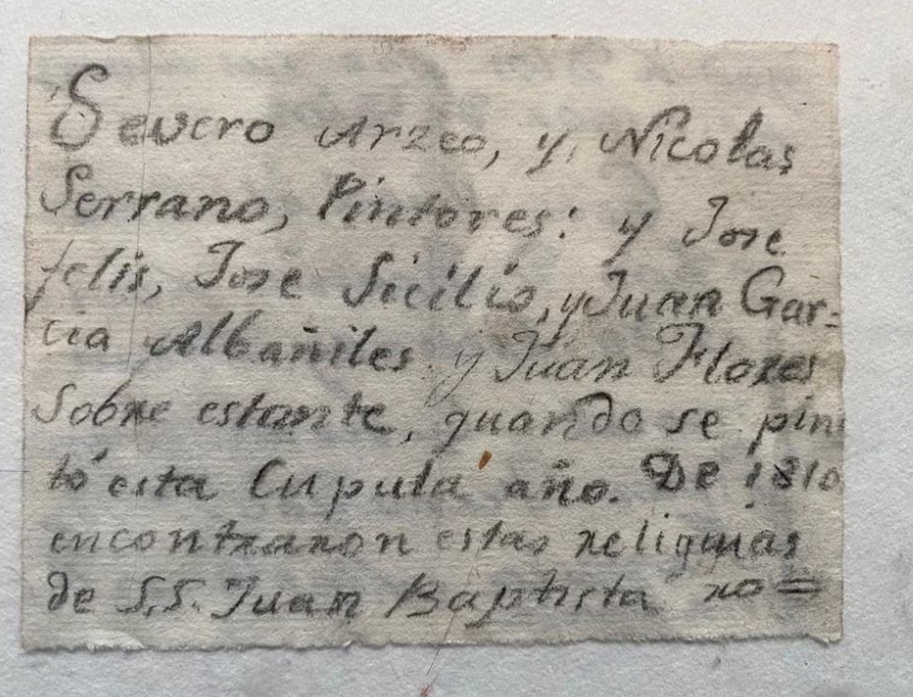 Severo Arzeo, y, Nicolas
Serrano, Pintores: y Jose
felis, Jose Sicilis, y Juan Gar=
cia Albañiles. y Juan Flores
Sobre estante, quando se pin
tó esta Cupula año. De 1810
encontraron estas reliquias
de S.S. Juan Baptista no =